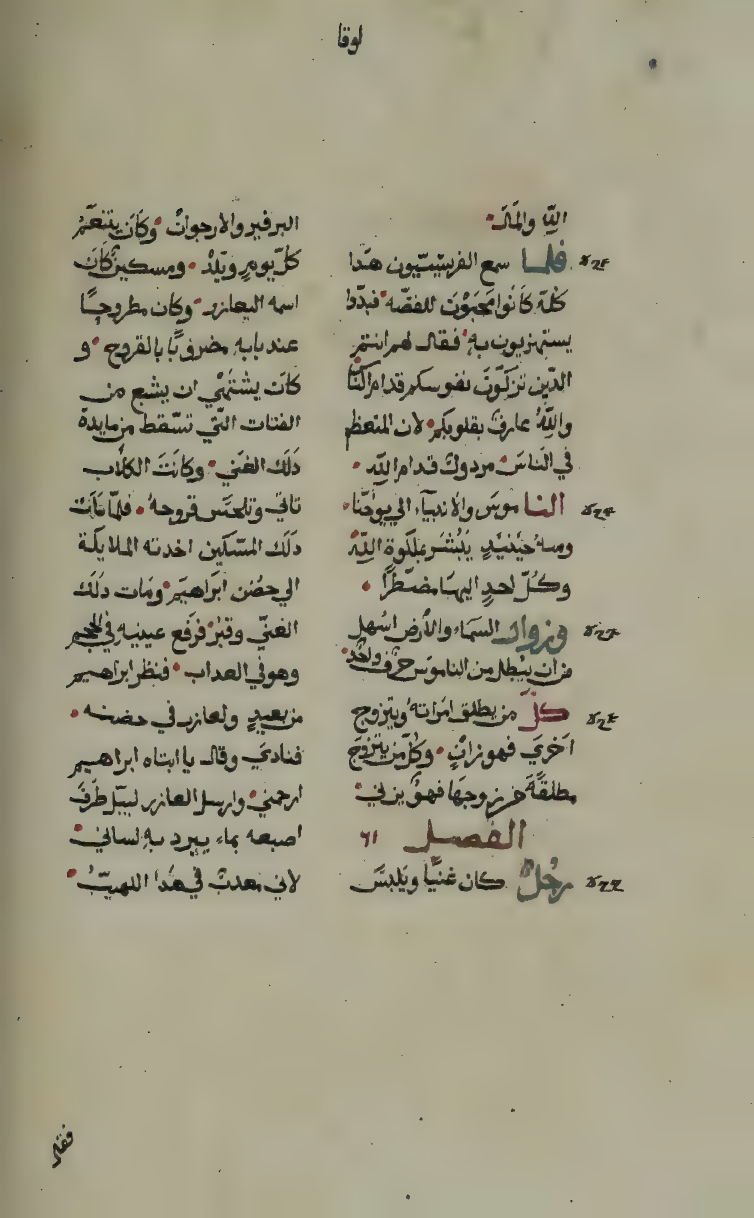 لوقا
اللّه والمال
فلما سمع الفريسيّيون هذا
كلّه كانوا محبّون للفضّه فبدّوا
يستهزيون به فقال لهم انتم
الدّين تزكّون نفوسكم قدام النّاس
واللّه عارف بقلوبكم لان المتعظم
في الناس مردول قدام اللّه
الناموس والانبياء الي يوحنّا
ومنه حينيدٍ يبشر بملكوة اللّه
وكلّ احدٍ اليها مضطرًّا
وزوال السماء والارض اسهل
من ان يبطل من الناموس حرف واحد
كلّ من يطلق امراته ويتزوج
اخري فهو زانٍ وكلّ من يتزوّج
مطلقةً من زوجها فهو يزني
الفصل ٦١
رجلٌ كان غنيًّا ويلبس
البرفير والارجوان وكان يتنعّم
كلّ يومٍ ويلد ومسكينٌ كان
اسمه اليعازر وكان مطروحًا
عند بابه مضروبًا بالقروح و
كان يشتهي ان يشبع من
الفتات الّتي تسّقط من مايدة
دلك الغني وكانت الكلاب
تاتي وتلحس قروحه فلمّا مات
دلك المسكين اخدته الملايكة
الي حضن ابراهيم ومات دلك
الغنيّ وقبر فرفع عينيه في الجحيم
وهو في العداب فنظر ابراهيم
من بعيدٍ ولعازر في حضنه
فنادي وقال يا ابتاه ابراهيم
ارحمني وارسل العازر ليبلّ طرف
اصبعه بماء يبرد به لساني
لاني معدبٌ في هدا اللهيب
فقال